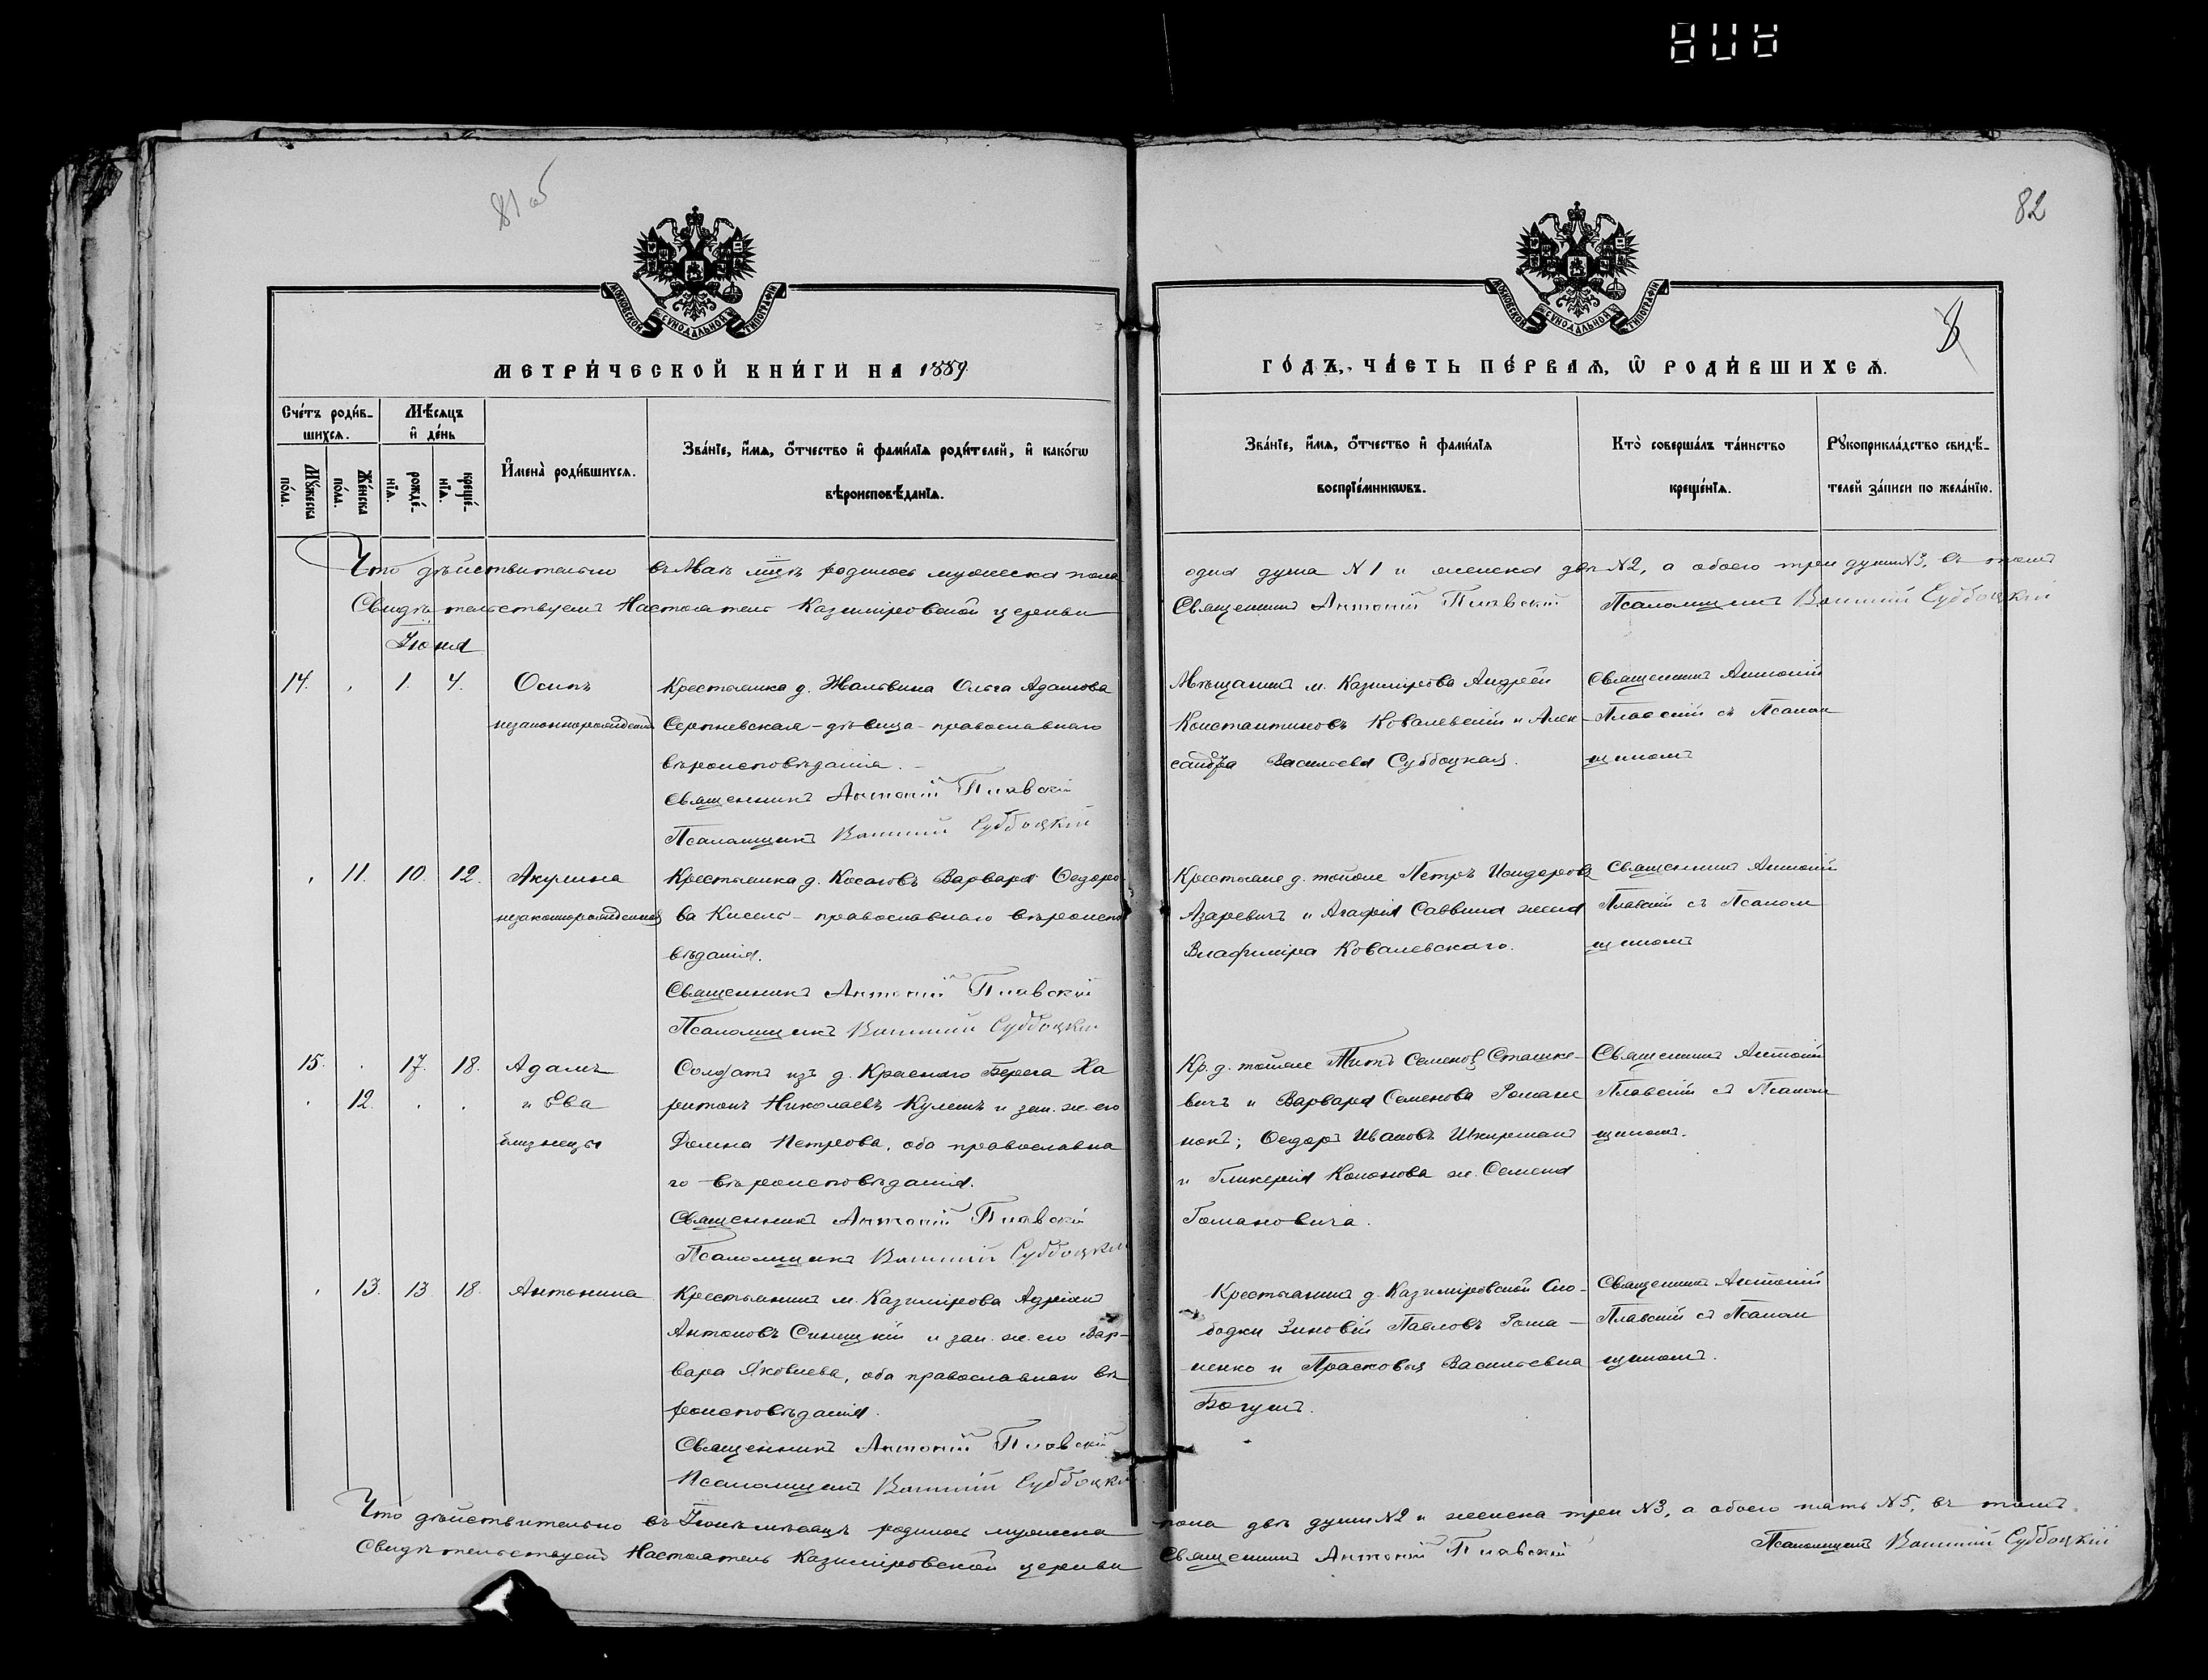 81 об
82
8
МОСКОВСКОЙ СѴНОДАЛЬНОЙ ТИПОГРАФІИ
МОСКОВСКОЙ СѴНОДАЛЬНОЙ ТИПОГРАФІИ
МЕТРИ́ЧЕСКОЙ КНИ́ГИ НА 1889
ГО́ДЪ, ЧА́СТЬ ПЕ́РВАѦ, Ѽ РОДИ́ВШИХСѦ.
Сче́тъ роди́в-
шихсѧ.
Мꙋ́жеска по́ла.
Же́нска по́ла.
Мѣ́сѧцъ
и҆ де́нь
рожде́-
нїѧ.
креще́-
нїѧ.
И҆мена̀ роди́вшихсѧ.
Зва́нїе, и҆́мѧ, ѻ҆́тчество и҆ фами́лїѧ роди́телей, и҆ како́гѡ
вѣроисповѣ́данїѧ.
Зва́нїе, и҆́мѧ, ѻ҆́тчество и҆ фами́лїѧ
воспрїе́мникѡвъ.
Кто̀ соверша́лъ та́инство
креще́нїѧ.
Рꙋкоприкла́дство свидѣ́-
телей за́писи по жела́нїю.
Что дѣйствительно въ Маѣ мцѣ родилось мужеска пола
одна душа N1 и женска двѣ N2, а обоего три души N3, въ томъ
Свидѣтельствуемъ Настоятель Казиміровской церкви
Священникъ Антоній Плавскій Псаломщикъ Суббоцкій
Іюня
14. 1. 4. Осипъ
незаконнорожденный
Крестьянка д. Жальвина Ольга Адамова
Серпневская - дѣвица - православнаго
вѣроисповѣданія.
Священникъ Антоній Плавскій
Псаломщикъ Суббоцкій
Мѣщанинъ м. Казимірова Андрей
Константиновъ Ковалевскій и Алек-
сандра Васильева Суббоцкая.
Священникъ Антоній
Плавскій съ Псалом
щикомъ
11. 10. 12. Акулина
незаконнорожденная
Крестьянка д. Косаковъ Варвара Ѳедоро-
ва Кисель - православнаго вѣроиспо
вѣданія.
Священникъ Антоній Плавскій
Псаломщикъ Суббоцкій
Крестьяне д. тойже Петръ Исидоровъ
Азаревичъ и Агафія Саввина жена
Владиміра Ковалевскаго.
Священникъ Антоній
Плавскій съ Псалом
щикомъ
15. 17. 18. Адамъ
12. и Ева
близнецы
Солдатъ изъ д. Краснаго Берега Ха
ритонъ Николаевъ Кулешъ и зак. ж. его
Домна Петрова, оба православна
го вѣроисповѣданія.
Священникъ Антоній Плавскій
Псаломщикъ Суббоцкій
Кр. д. тойже Титъ Семеновъ Сташке-
вичъ и Варвара Семенова Романе
нокъ; Ѳедоръ Ивановъ Шкирманъ
и Гликерія Кононова ж. Семена
Гомановича.
Священникъ Антоній
Плавскій съ Псалом
щикомъ.
13. 13. 18. Антонина
Крестьянинъ м. Казимірова Адріанъ
Антоновъ Синицкій и зак. ж. его Вар-
вара Яковлева, оба православнаго вѣ
роисповѣданія.
Священникъ Антоній Плавскій
Псаломщикъ Суббоцкій
Крестьянинъ д. Казиміровской Сло-
бодки Зиновій Павловъ Рома-
ненко и Прасковья Васильевна
Богушъ.
Священникъ Антоній
Плавскій съ Псалом
щикомъ.
Что дѣйствительно въ Іюнѣ мѣсяцѣ родилось мужеска
пола двѣ души N2 и женска три N3, а обоего пять N5, въ томъ
Свидѣтельствуемъ Настоятель Казиміровской церкви
Священникъ Антоній Плавскій Псаломщикъ Суббоцкій